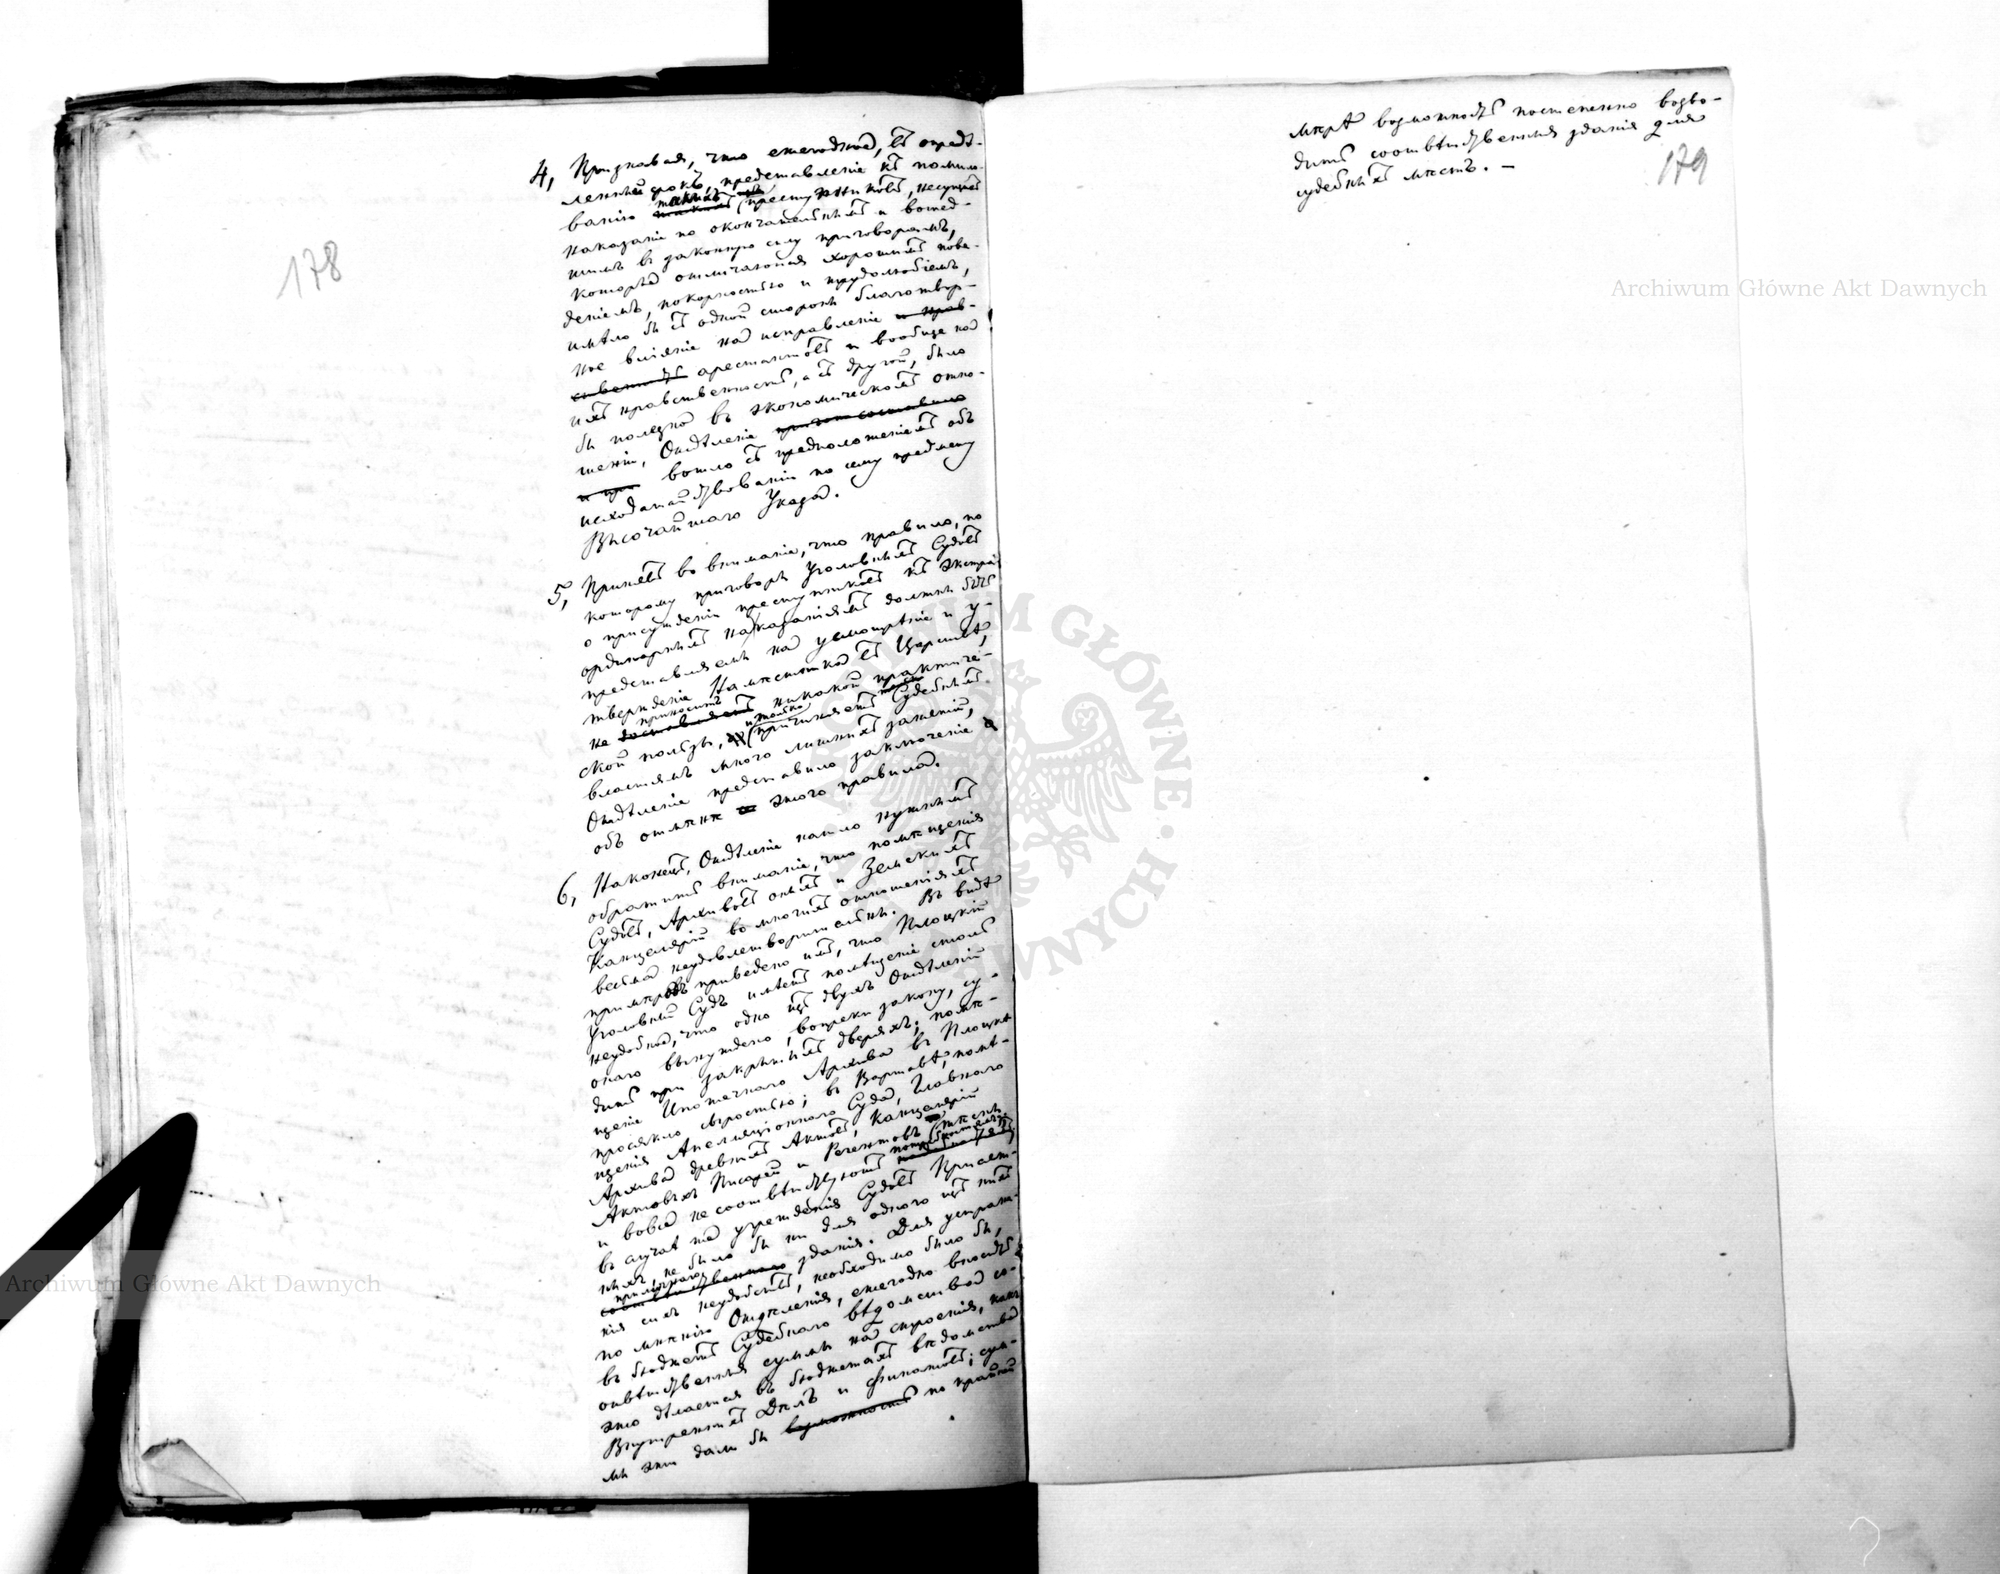 178
4, Признавая, что ежегодное, въ опредѣ-
ленный срокъ, представленіе къ помило-
ванію такихъ преступниковъ, несущихъ
наказаніе по окончательнымъ и вошед-
шимъ въ законную силу приговорамъ,
которые отличаются хорошимъ пове-
деніемъ, покорностью и трудолюбіемъ,
имѣло бы съ одной стороны благотвор-
ное вліяніе на исправленіе и нрав-
ственность арестантовъ и вообще на
ихъ нравственность, а съ другой, было
бы полезно въ экономическомъ отно-
шеніи, Отдѣленіе
вошло съ предположеніемъ объ
исходатайствованіи по сему предмету
Высочайшаго Указа.
5, Принявъ во вниманіе, что правило, по
которому приговоры Уголовныхъ Судовъ
о присужденіи преступниковъ къ экстра-
ординарнымъ наказаніямъ должны быть
представляемы на усмотрѣніе и у-
твержденіе Намѣстника въ Царствѣ,
не доставляетъ приноситъ никакой практиче-
ской пользы, и только причиняетъ Судебнымъ
властямъ много лишнихъ занятій,
Отдѣленіе представило заключеніе
объ отмѣнѣ этого правила.
6, Наконецъ, Отдѣленіе нашло нужнымъ
обратить вниманіе, что помѣщенія
Судовъ, Архивовъ оныхъ и Земскихъ
Канцелярій во многихъ отношеніяхъ
весьма неудовлетворительны. Въ видѣ
примѣровъ приведено имъ, что Плоцкій
Уголовный Судъ имѣетъ помѣщеніе столь
неудобное, что одно изъ двухъ Отдѣленій
онаго вынуждено, вопреки закону, су-
дить при закрытыхъ дверяхъ; помѣ-
щеніе Ипотечнаго Архива въ Плоцкѣ
просякло сыростью; въ Варшавѣ, помѣ-
щенія Апелляціоннаго Суда, Главнаго
Архива древнихъ Актовъ, Канцелярій
Актовыхъ Писарей и Регентовъ тѣсны
и вовсе не соотвѣтствуютъ потребностямъ;
въ случаѣ же учрежденія Судовъ Присяж-
ныхъ, не было бы ни для одного изъ нихъ
соотвѣтственнаго приличнаго зданія. Для устране-
нія сихъ неудобствъ, необходимо было бы,
по мнѣнію Отдѣленія, ежегодно вносить
въ бюджетъ Судебнаго вѣдомства со-
отвѣтственныя суммы на строенія, какъ
это дѣлается въ бюджетахъ вѣдомства
Внутреннихъ Дѣлъ и Финансовъ; сум-
мы эти дали бы возможность по крайней
мѣрѣ возможность постепенно возво-
дить соотвѣтственныя зданія для
судебныхъ мѣстъ. —
179
Archiwum Główne Akt Dawnych
Archiwum Główne Akt Dawnych